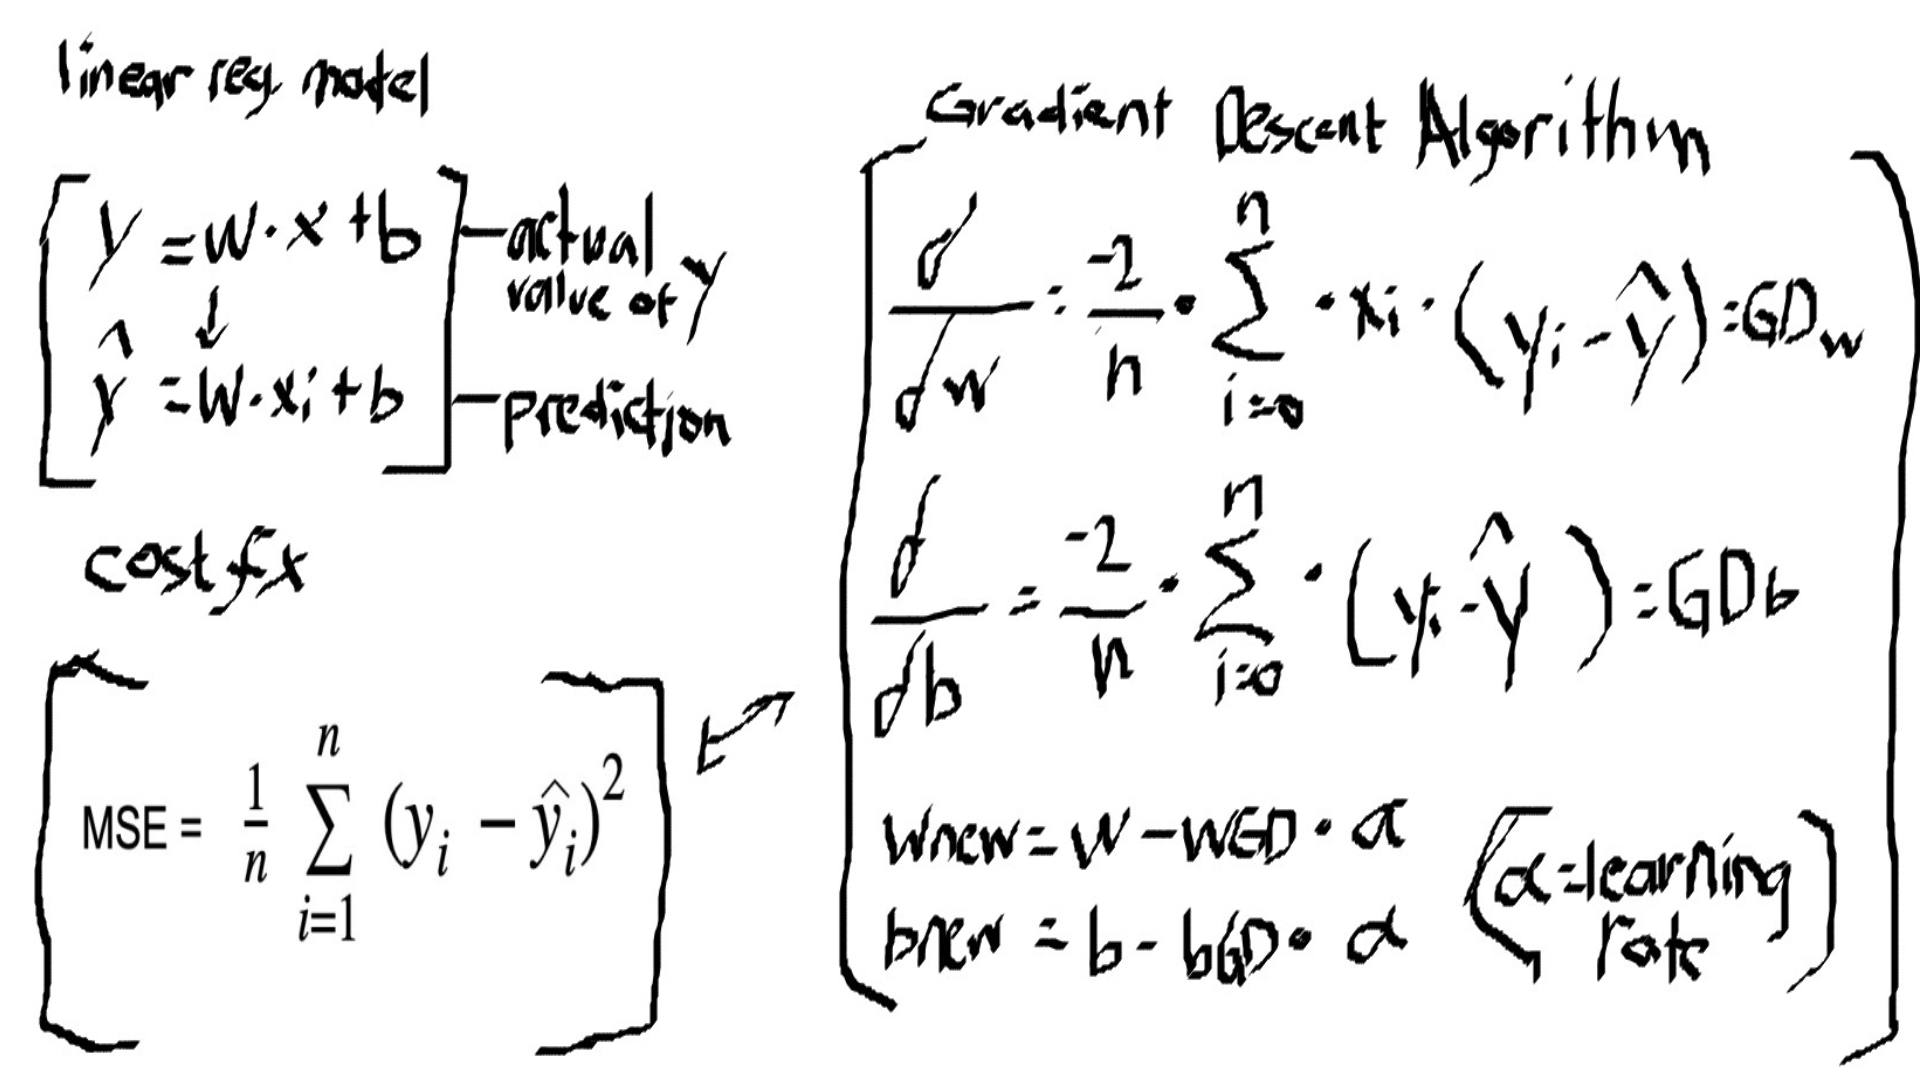 linear reg. model
y = w · x + b — actual value of y
ŷ = w · xi + b — prediction
cost fx
MSE = 1/n n ∑ i=1 (yi − ŷi)²
Gradient Descent Algorithm
d/dw = -2/n · n ∑ i=0 · xi · (yi - ŷ) = GDw
d/db = -2/n · n ∑ i=0 · (yi - ŷ) = GDb
wnew = w - wGD · α
bnew = b - bGD · α
(α = learning rate)